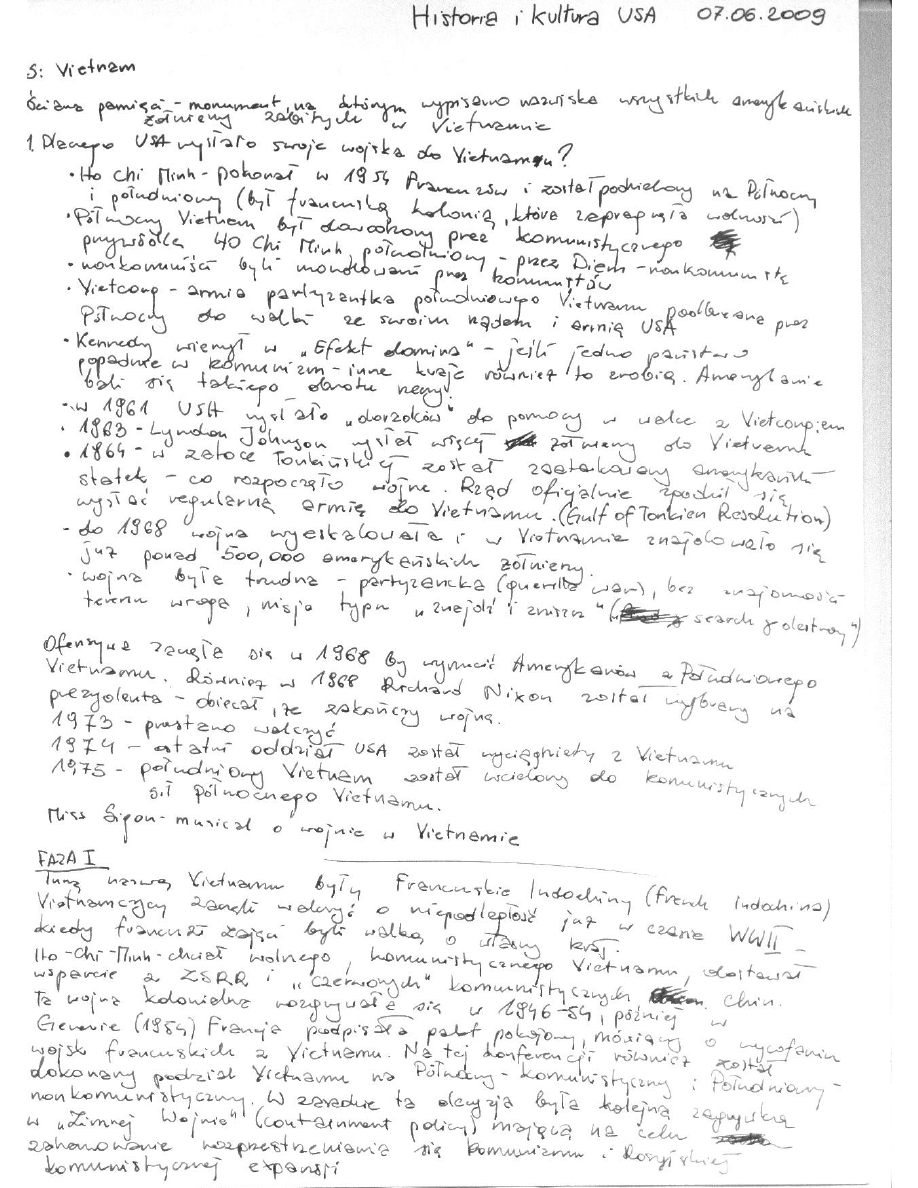 Historia i kultura USA 07.06.2009
S: Vietnam
Ściana pamięci - monument, na którym wypisano nazwiska wszystkich amerykańskich
żołnierzy zabitych w Vietnamie
1. Dlaczego USA wysłało swoje wojska do Vietnamu?
• Ho Chi Minh - pokonał w 1954 Francuzów i został podzielony na Północny
i południowy (był francuską kolonią, która zapragnęła wolność)
• Północny Vietnam był dowodzony przez komunistycznego
przywódcę Ho Chi Minh, południowy - przez Diem - nonkomunistę
• nonkomuniści byli mordowani przez komunistów
• Vietcong - armia partyzantka południowego Vietnamu podburzana przez
Północny do walki ze swoim rządem i armią USA
• Kennedy wierzył w "Efekt domina" - jeśli jedno państwo
popadnie w komunizm - inne kraje również to zrobią. Amerykanie
bali się takiego obrotu rzeczy!
• w 1961 USA wysłało "doradców" do pomocy w walce z Vietcongiem
• 1963 - Lyndon Johnson wysłał więcej żołnierzy do Vietnamu
• 1864 - w zatoce Tonkińskiej został zaatakowany amerykański
statek - co rozpoczęło wojnę. Rząd oficjalnie zgodził się
wysłać regularną armię do Vietnamu. (Gulf of Tonkien Resolution)
- do 1968 wojna wyeskalowała i w Vietnamie znajdowało się
już ponad 500,000 amerykańskich żołnierzy.
• wojna była trudna - partyzancka (guerilla war), bez znajomości
terenu wroga, misje typu "znajdź i zniszcz" ("search & destroy")
Ofensywa zaczęła się w 1968 by wyrzucić Amerykanów z Południowego
Vietnamu. Również w 1968 Richard Nixon został wybrany na
prezydenta - obiecał, że zakończy wojnę.
1973 - przestano walczyć
1974 - ostatni oddział USA został wyciągnięty z Vietnamu
1975 - południowy Vietnam został wcielony do komunistycznych
sił północnego Vietnamu.
Miss Sigon - musical o wojnie w Vietnamie
FAZA I
Inną nazwą Vietnamu były Francuskie Indochiny (French Indochina)
Vietnamczycy zaczęli walczyć o niepodległość już w czasie WWII -
kiedy francuzi zajęci byli walką o własny kraj.
Ho-Chi-Minh - chciał wolnego, komunistycznego Vietnamu, dostawał
wsparcie z ZSRR i "czerwonych" komunistycznych Chin.
Ta wojna kolonialna rozgrywała się w 1946-54, później w
Genewie (1954) Francja podpisała pakt pokojowy, mówiący o wycofaniu
wojsk francuskich z Vietnamu. Na tej konferencji również został
dokonany podział Vietnamu na Północny - komunistyczny i Południowy -
nonkomunistyczny. W zasadzie ta decyzja była kolejną zagrywką
w "Zimnej Wojnie" (containment policy) mającą na celu
zahamowanie rozprzestrzeniania się komunizmu i Rosyjskiej
komunistycznej expansji